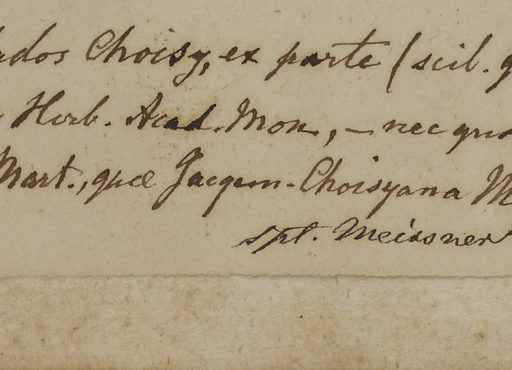 ados Choisy, ex parte (scil. q
Herb. Acad. Mon., – nec qua
Mart., quæ Jacquem. Choisyana M
spl. Meissner